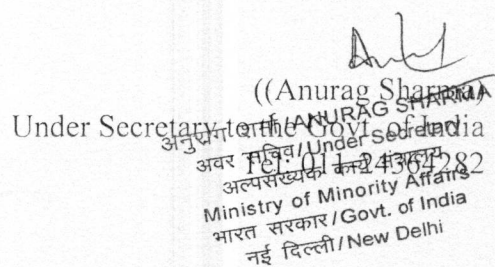 ((Anurag Sharma)
Under Secretary to the Govt. of India
Tel: 011-24364282
अनुराग शर्मा/ANURAG SHARMA
अवर सचिव/Under Secretary
अल्पसंख्यक कार्य मंत्रालय
Ministry of Minority Affairs
भारत सरकार/Govt. of India
नई दिल्ली/New Delhi